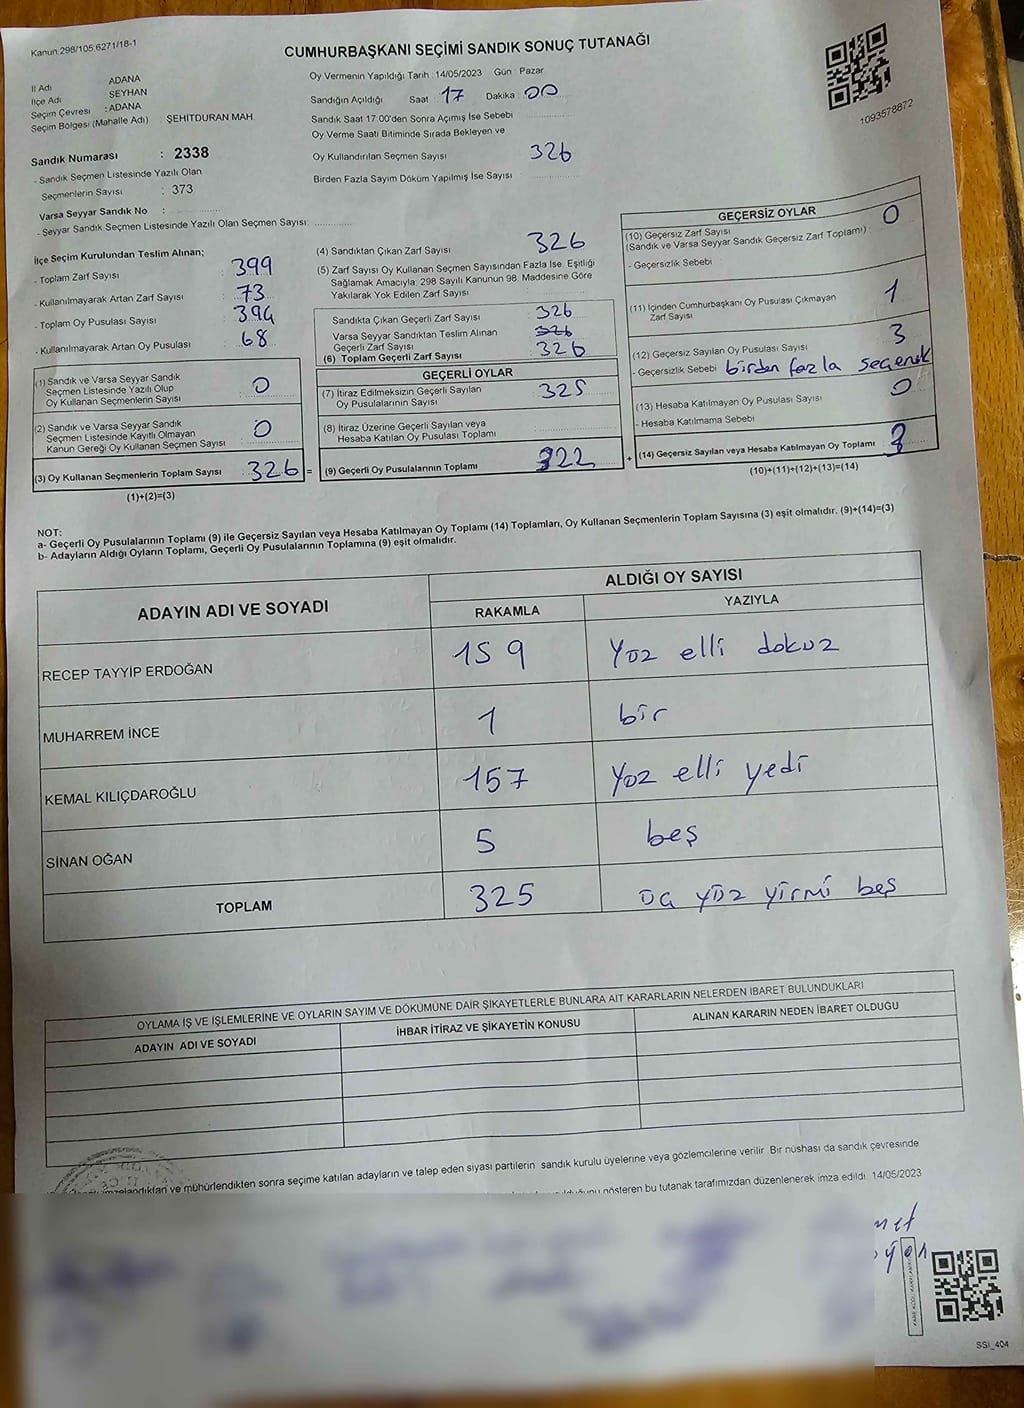 Kanun:298/105;6271/18-1
CUMHURBAŞKANI SEÇİMİ SANDIK SONUÇ TUTANAĞI
İl Adı : ADANA
İlçe Adı : SEYHAN
Seçim Çevresi : ADANA
Seçim Bölgesi (Mahalle Adı) : ŞEHİTDURAN MAH.
Sandık Numarası : 2338
- Sandık Seçmen Listesinde Yazılı Olan
Seçmenlerin Sayısı : 373
Varsa Seyyar Sandık No :
- Seyyar Sandık Seçmen Listesinde Yazılı Olan Seçmen Sayısı:
Oy Vermenin Yapıldığı Tarih : 14/05/2023 Gün : Pazar
Sandığın Açıldığı Saat : 17 Dakika : 00
Sandık Saat 17:00'den Sonra Açımış İse Sebebi
Oy Verme Saati Bitiminde Sırada Bekleyen ve
Oy Kullandırılan Seçmen Sayısı 326
Birden Fazla Sayım Döküm Yapılmış İse Sayısı :
1093578872
İlçe Seçim Kurulundan Teslim Alınan;
- Toplam Zarf Sayısı : 399
- Kullanılmayarak Artan Zarf Sayısı : 73
- Toplam Oy Pusulası Sayısı : 394
- Kullanılmayarak Artan Oy Pusulası : 68
(1) Sandık ve Varsa Seyyar Sandık
Seçmen Listesinde Yazılı Olup
Oy Kullanan Seçmenlerin Sayısı : 0
(2) Sandık ve Varsa Seyyar Sandık
Seçmen Listesinde Kayıtlı Olmayan
Kanun Gereği Oy Kullanan Seçmen Sayısı : 0
(3) Oy Kullanan Seçmenlerin Toplam Sayısı 326 =
(1)+(2)=(3)
(4) Sandıktan Çıkan Zarf Sayısı : 326
(5) Zarf Sayısı Oy Kullanan Seçmen Sayısından Fazla İse, Eşitliği
Sağlamak Amacıyla; 298 Sayılı Kanunun 98. Maddesine Göre
Yakılarak Yok Edilen Zarf Sayısı :
Sandıkta Çıkan Geçerli Zarf Sayısı : 326
Varsa Seyyar Sandıktan Teslim Alınan
Geçerli Zarf Sayısı : 326
(6) Toplam Geçerli Zarf Sayısı : 326
GEÇERLİ OYLAR
(7) İtiraz Edilmeksizin Geçerli Sayılan
Oy Pusulalarının Sayısı : 325
(8) İtiraz Üzerine Geçerli Sayılan veya
Hesaba Katılan Oy Pusulası Toplamı :
(9) Geçerli Oy Pusulalarının Toplamı : 322 +
GEÇERSİZ OYLAR
(10) Geçersiz Zarf Sayısı
(Sandık ve Varsa Seyyar Sandık Geçersiz Zarf Toplamı) : 0
- Geçersizlik Sebebi :
(11) İçinden Cumhurbaşkanı Oy Pusulası Çıkmayan
Zarf Sayısı : 1
(12) Geçersiz Sayılan Oy Pusulası Sayısı : 3
- Geçersizlik Sebebi : birden fazla seçenek
(13) Hesaba Katılmayan Oy Pusulası Sayısı : 0
- Hesaba Katılmama Sebebi :
(14) Geçersiz Sayılan veya Hesaba Katılmayan Oy Toplamı : 3
(10)+(11)+(12)+(13)=(14)
NOT:
a- Geçerli Oy Pusulalarının Toplamı (9) ile Geçersiz Sayılan veya Hesaba Katılmayan Oy Toplamı (14) Toplamları, Oy Kullanan Seçmenlerin Toplam Sayısına (3) eşit olmalıdır. (9)+(14)=(3)
b- Adayların Aldığı Oyların Toplamı, Geçerli Oy Pusulalarının Toplamına (9) eşit olmalıdır.
ADAYIN ADI VE SOYADI
ALDIĞI OY SAYISI
RAKAMLA YAZIYLA
RECEP TAYYİP ERDOĞAN 159 Yüz elli dokuz
MUHARREM İNCE 1 bir
KEMAL KILIÇDAROĞLU 157 Yüz elli yedi
SİNAN OĞAN 5 beş
TOPLAM 325 üç yüz yirmi beş
OYLAMA İŞ VE İŞLEMLERİNE VE OYLARIN SAYIM VE DÖKÜMÜNE DAİR ŞİKAYETLERLE BUNLARA AİT KARARLARIN NELERDEN İBARET BULUNDUKLARI
ADAYIN ADI VE SOYADI İHBAR İTİRAZ VE ŞİKAYETİN KONUSU ALINAN KARARIN NEDEN İBARET OLDUĞU
imzalandıktan ve mühürlendikten sonra seçime katılan adayların ve talep eden siyasi partilerin sandık kurulu üyelerine veya gözlemcilerine verilir. Bir nüshası da sandık çevresinde
gösteren bu tutanak tarafımızdan düzenlenerek imza edildi. 14/05/2023
SSİ_404